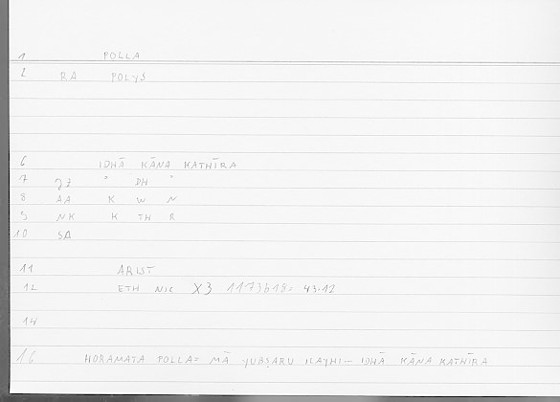 1 POLLA
2 RA POLYS
6 IDHĀ KĀNA KATHĪRA
7 JZ " DH "
8 AA K W N
9 NK K TH R
10 SA
11 ARIST
12 ETH NIC X3 1173b18= 43.12
14
16 HORAMATA POLLA= MĀ YUBṢARU ILAYHI– IDHĀ KĀNA KATHĪRA